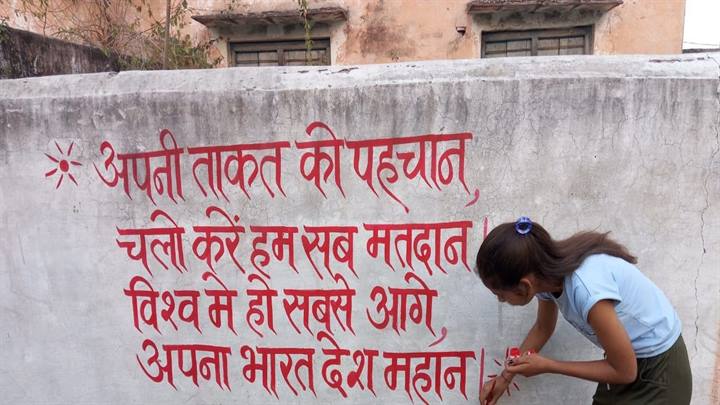 अपनी ताकत को पहचान,
चलो करें हम सब मतदान।
विश्व मे हो सबसे आगे,
अपना भारत देश महान।